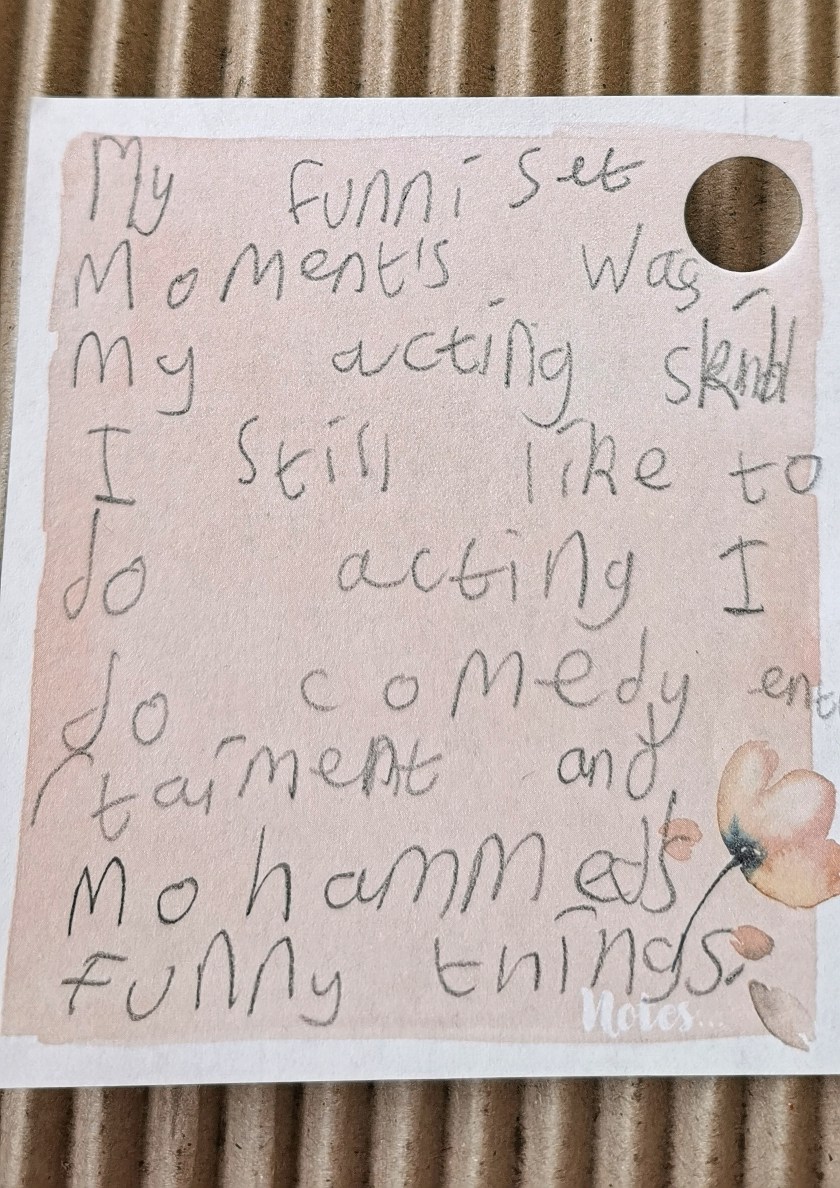 My funni set
Moment's was
My acting
I still like to
do acting I
do comedy ent
rtaiment and
Mohammed's
funny things.
Notes...